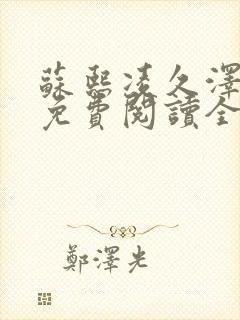 蘇熙凌久澤
免費閱讀全
鄭澤光